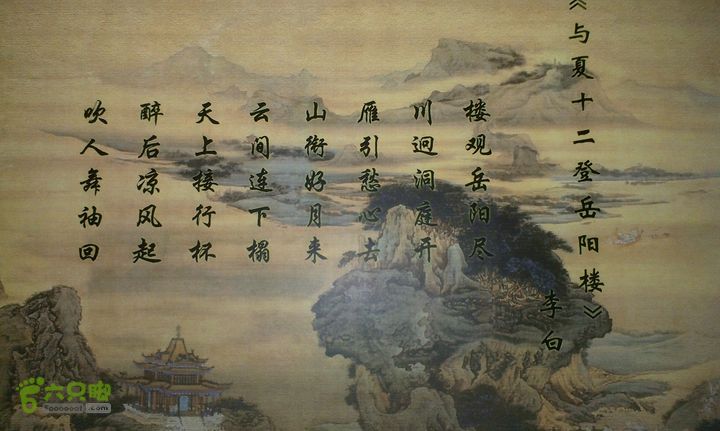 《与夏十二登岳阳楼》
李白
楼观岳阳尽
川迥洞庭开
雁引愁心去
山衔好月来
云间连下榻
天上接行杯
醉后凉风起
吹人舞袖回
六只脚
foooooot.com